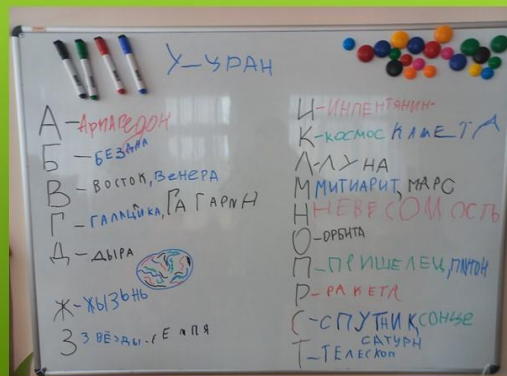 У-УРАН
А-АРМАГЕДОН
Б-БЕЗДНА
В-ВОСТОК, ВЕНЕРА
Г-ГАЛАЦИКА, ГАГАРИН
Д-ДЫРА
Ж-ЖЫЗЬНЬ
З ЗВЁЗДЫ, ЗЕМЛЯ
И-ИНПЕНТЯНИН
К-КОСМОС КАМЕТА
Л-ЛУНА
М МИТИАРИТ, МАРС
Н НЕВЕСОМОСТЬ
О-ОРБИТА
П-ПРИШЕЛЕЦ, ПЛУТОН
Р-РАКЕТА
С-СПУТНИК, СОНЦЕ
САТУРН
Т-ТЕЛЕСКОП